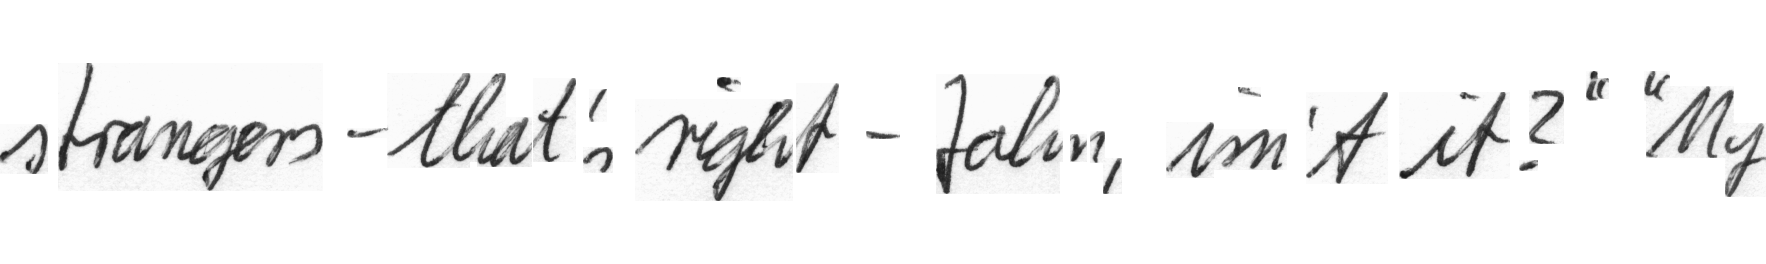 strangers - that's right - Jahn, isn't it?" "My